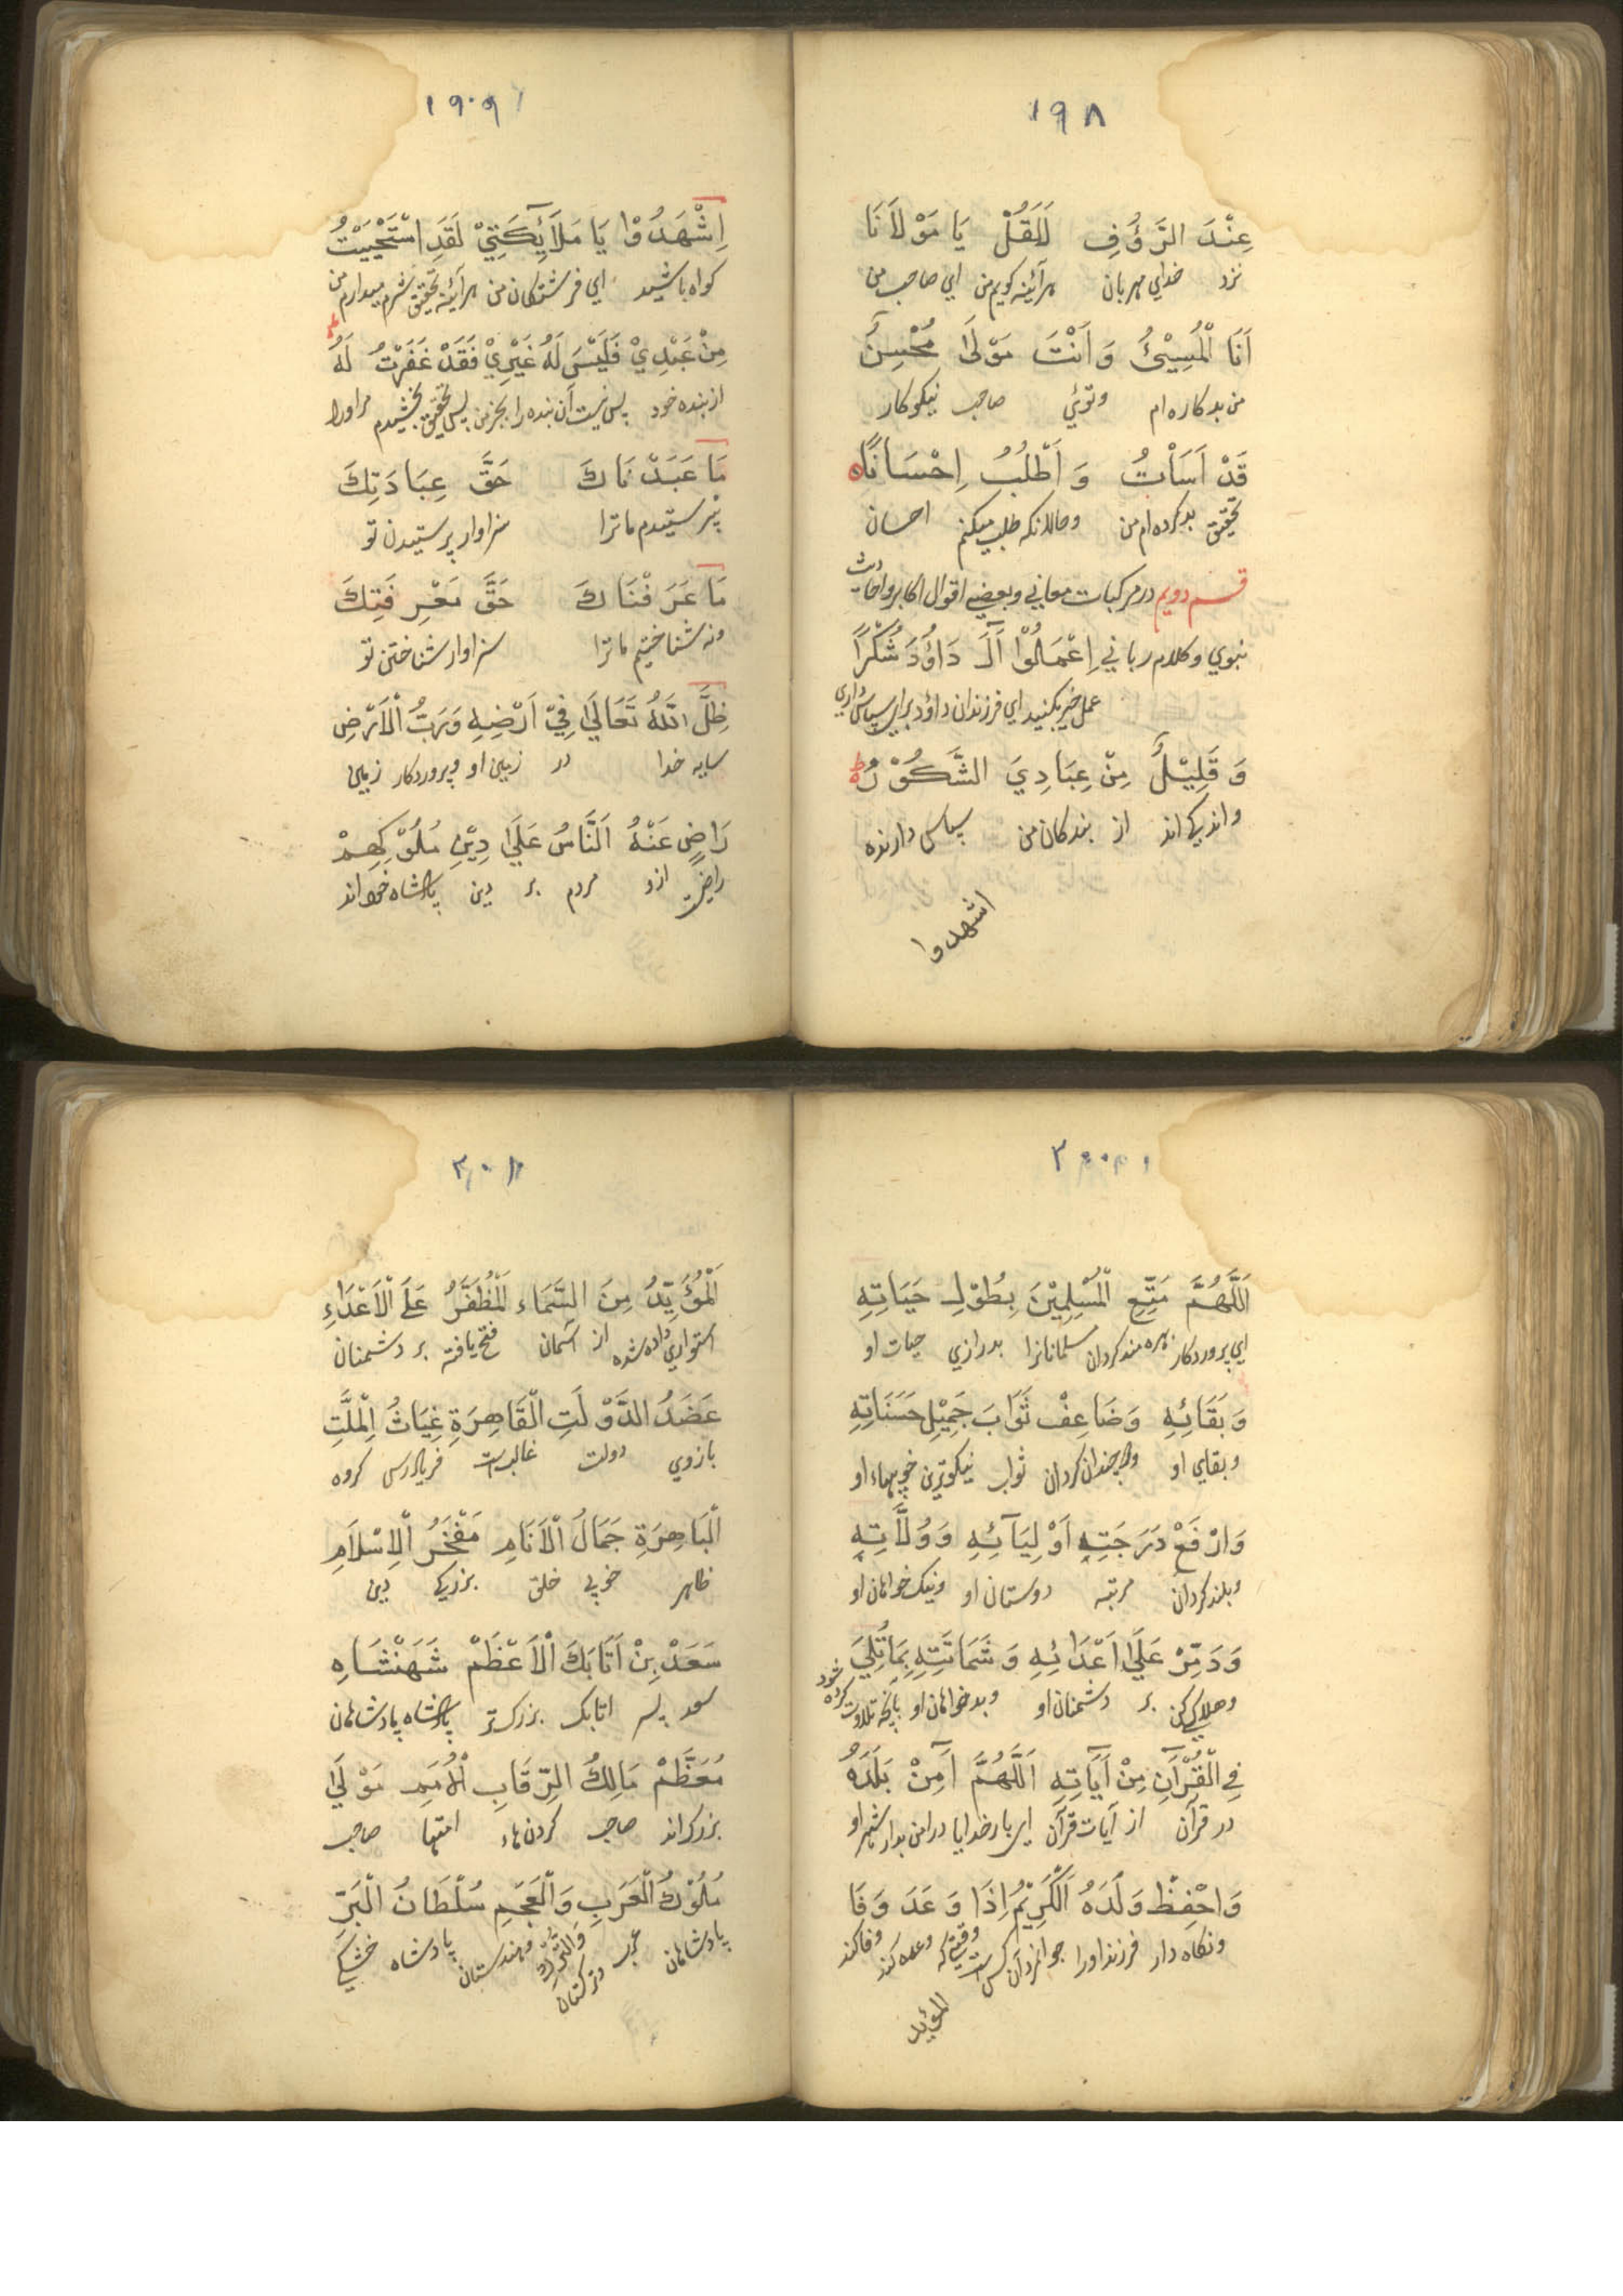 ۱۹۸
عِنْدَ الرَّؤُفِ لَاَقُلْ يَا مَوْلَانَا
نزد خداي مهربان هرآئينه كويم من اي صاحب من
اَنَا الْمُسِيْئُ وَاَنْتَ مَوْلَى مُحْسِنٌ
من بدكاره ام وتوئي صاحب نيكوكار
قَدْ اَسَاْتُ وَ اَطْلُبُ اِحْسَانًا
تحقيق بدكرده ام من وحالانكه طلب ميكنم احسان
قسم دويم در مركبات معاني وبعضي اقوال اكابر واحاديث
نبوي وكلام رباني اِعْمَلُوْا آلَ دَاوُدَ شُكْرًا
عمل خير بكنيد اي فرزندان داود براي سپاس داري
وَ قَلِيْلٌ مِنْ عِبَادِيَ الشَّكُوْرُ
واندكي اند از بندكان من سپاس دارنده
اشهدوا
۱۹۹
اِشْهَدُوْا يَا مَلَآئِكَتِيْ لَقَدِ اسْتَحْيَيْتُ
كواه باشيد اي فرشتكان من هرآئينه تحقيق شرم ميدارم من
مِنْ عَبْدِيْ فَلَيْسَ لَهُ غَيْرِيْ فَقَدْ غَفَرْتُ لَهُ
از بنده خود پس نيست آن بنده را بجز من پس تحقيق بخشيدم مر اورا
مَا عَبَدْنَاكَ حَقَّ عِبَادَتِكَ
نپرستيدم ماترا سزاوار پرستيدن تو
مَا عَرَفْنَاكَ حَقَّ مَعْرِفَتِكَ
ونه شناختيم ماترا سزاوار شناختن تو
ظِلُّ اللهُ تَعَالَى فِيْ اَرْضِهِ وَرَبُّ الْاَرْضِ
سايه خدا در زمين او وپروردكار زمين
رَاضٍ عَنْهُ اَلنَّاسُ عَلَى دِيْنِ مُلُوْكِهِمْ
راضيست ازو مردم بر دين پادشاه خود اند
۲۰۰
اَللَّهُمَّ مَتِّعِ الْمُسْلِمِيْنَ بِطُوْلِ حَيَاتِهِ
اي پروردكار بهره مند كردان مسلمانانرا بدرازي حيات او
وَ بَقَائِهِ وَضَاعِفْ ثَوَابَ جَمِيْلِ حَسَنَاتِهِ
وبقاي او ودوچندان كردان ثواب نيكوترين خوبيهاء او
وَارْفَعْ دَرَجَتِهِ اَوْلِيَآئِهِ وَوُلَّاتِهِ
وبلند كردان مرتبه دوستان او ونيك خواهان او
وَ دَمِّرْ عَلَى اَعْدَائِهِ وَ شَمَاتَتِهِ بِمَا تُلِيَ
وهلاكي كن بر دشمنان او وبدخواهان او بآنچه تلاوت كرده شود
فِي الْقُرْآنِ مِنْ آيَاتِهِ اَللَّهُمَّ آمِنْ بَلَدَهُ
در قرآن از آيات قرآن اي بار خدايا در امن بدار شهر او
وَ احْفِظْ وَلَدَهُ اَلْكَرِيْمُ اِذَا وَعَدَ وَفَا
ونكاه دار فرزند اورا جوانمرد آن كس است وقتيكه وعده كند وفا كند
المؤيد
۲۰۱
اَلْمُؤَيَّدُ مِنَ السَّمَاء اَلْمُظَفَّرُ عَلَى الْاَعْدَاءِ
استواري داده شده از آسمان فتح يافته بر دشمنان
عَضَدُ الدَّوْلَتِ الْقَاهِرَةِ غِيَاثُ الْمِلَّتِ
بازوي دولت غالبست فريادرس كروه
اَلْبَاهِرَةِ جَمَالُ الْاَنَامِ مَفْخَرُ الْاِسْلَامِ
ظاهر خوبي خلق بزركي دين
سَعَدْ بِنْ اَتَابَكَ الْاَعْظَمْ شَهَنْشَاهِ
سعد پسر اتابك بزركتر پادشاه پادشاهان
مُعَظَّمْ مَالِكُ الرِّقَابِ الْاُمَمِ مَوْلَى
بزرك اند صاحب كردن هاء امتها صاحب
مُلُوْكُ الْعَرَبِ وَالْعَجَمِ سُلْطَانُ الْبَرِّ
پادشاهان عرب وَالتُّرْكِ وتركستان وهندستان پادشاه خشكي